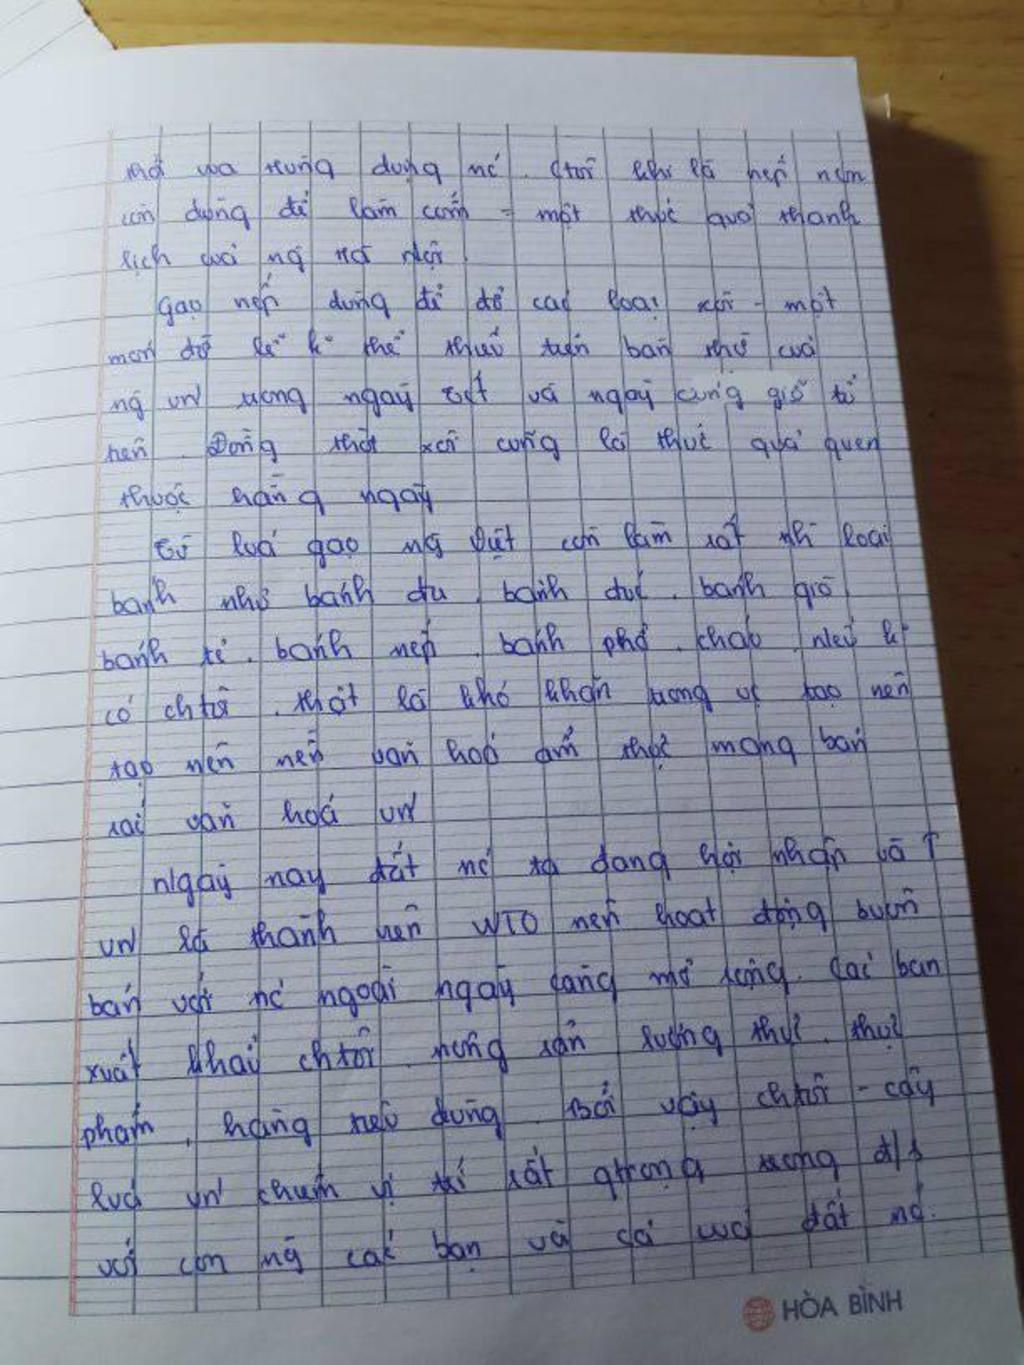 và trung dụng nó. chtôi khi là nếp non
còn dùng để làm cốm - một thức quà thanh
lịch của ng Hà Nội
Gạo nếp dùng để đồ các loại xôi - một
món đồ lễ k thể thiếu trên bàn thờ của
ng VN trong ngày Tết và ngày cúng giỗ tổ
tiên. Đồng thời xôi cũng là thức quà quen
thuộc hàng ngày
Từ lúa gạo ng Việt còn làm rất nh loại
bánh như bánh đa, bánh đúc, bánh giò
bánh tẻ, bánh nếp, bánh phở, cháo. Nếu k
có chtôi thật là khó khăn trong vc tạo nên
tạo nên nền văn hoá ẩm thực mang bản
sắc văn hoá VN
Ngày nay đất nc ta đang hội nhập và ↑
VN là thành viên WTO nên hoạt động buôn
bán với nc ngoài ngày càng mở rộng. Các bạn
xuất khẩu chtôi nông sản lương thực, thực
phẩm, hàng tiêu dùng. Bởi vậy chtôi - cây
lúa VN chiếm vị trí rất qtrọng trong đ/s
với con ng các bạn và cả của đất nc.
HÒA BÌNH